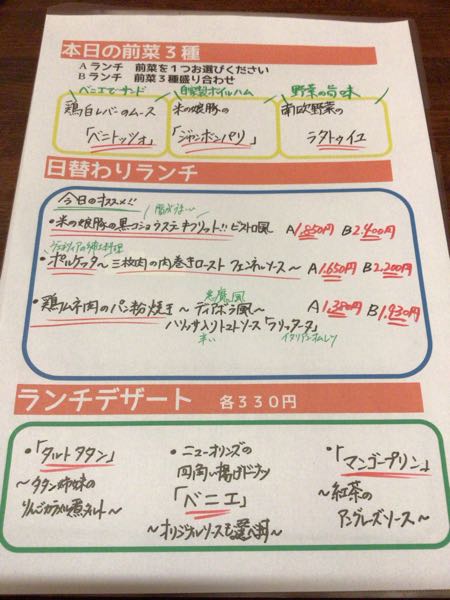 本日の前菜3種
Aランチ 前菜を1つお選びください
Bランチ 前菜3種盛り合わせ
ベニエでサンド
自家製ボイルハム
野菜の旨味
鶏白レバーのムース
「ベニトッツォ」
米の娘豚の
「ジャンボンパリ」
南欧野菜の
ラタトゥイユ
日替わりランチ
今日のオススメ!!
・米の娘豚の黒コショウステーキフリット!! ビストロ風 A1,850円 B2,400円
・ポルケッタ〜三枚肉の肉巻きロースト フェンネルソース〜 A1,650円 B2,200円
悪魔風
・鶏ムネ肉のパン粉焼き〜ディアボラ風〜 A1,380円 B1,930円
ハリッサ入りトマトソース「フリッタータ」
辛い
イタリアンオムレツ
ランチデザート 各330円
・「タルトタタン」
〜タタン姉妹の
りんごカラメル煮タルト〜
・ニューオリンズの
四角い揚げドーナツ
「ベニエ」
〜オリジナルソースも選べます〜
・「マンゴープリン」
〜紅茶の
アングレーズソース〜